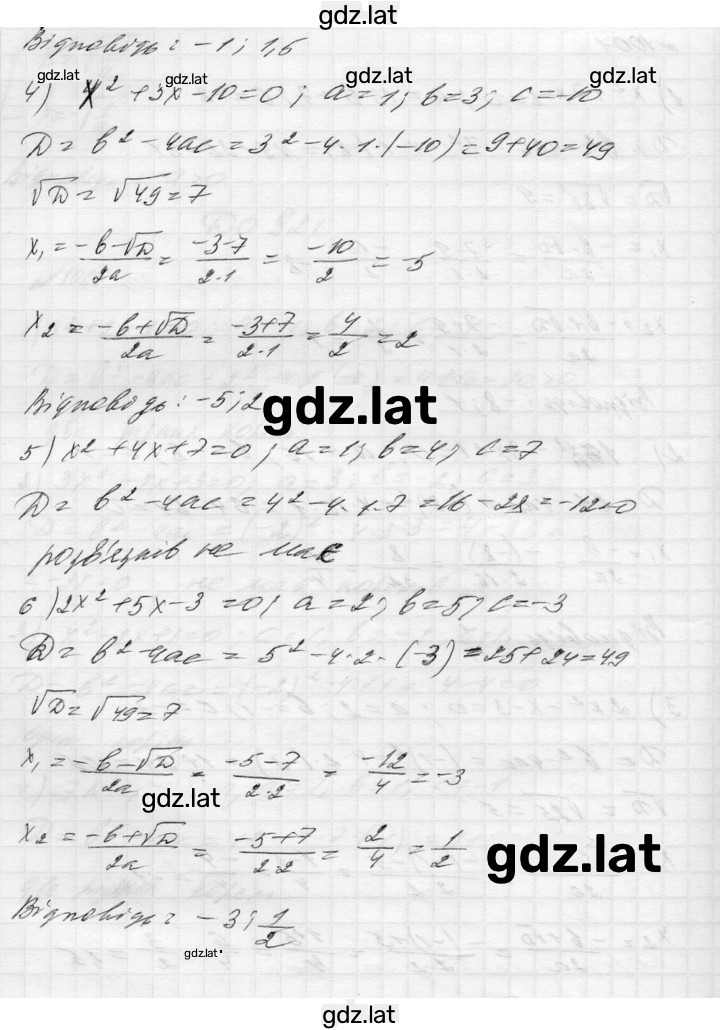 gdz.lat
Відповідь: -1; 1,6
gdz.lat gdz.lat gdz.lat
4) x² + 3x - 10 = 0; a = 1; b = 3; c = -10
D = b² - 4ac = 3² - 4·1·(-10) = 9 + 40 = 49
√D = √49 = 7
x₁ = (-b-√D)/2a = (-3-7)/(2·1) = -10/2 = -5
x₂ = (-b+√D)/2a = (-3+7)/(2·1) = 4/2 = 2
Відповідь: -5; 2
gdz.lat
5) x² + 4x + 7 = 0; a = 1; b = 4; c = 7
D = b² - 4ac = 4² - 4·1·7 = 16 - 28 = -12 < 0
розв'язків не має
6) 2x² + 5x - 3 = 0; a = 2; b = 5; c = -3
D = b² - 4ac = 5² - 4·2·(-3) = 25 + 24 = 49
√D = √49 = 7
x₁ = (-b-√D)/2a = (-5-7)/(2·2) = -12/4 = -3
gdz.lat
x₂ = (-b+√D)/2a = (-5+7)/(2·2) = 2/4 = 1/2
gdz.lat
Відповідь: -3; 1/2
gdz.lat
gdz.lat